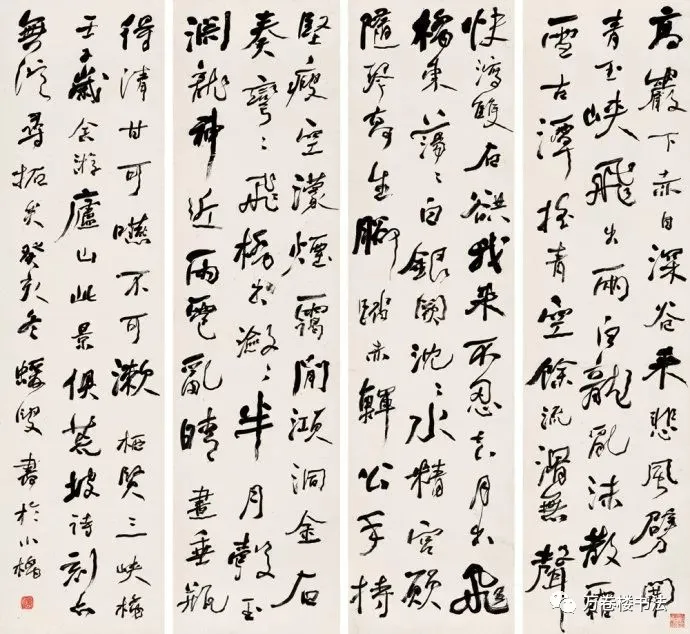 高巖下赤日深谷来悲風劈開
青玉峽飛出兩白龍亂沫散霜
雪古潭搖青空餘流滑無聲
快瀉雙石谼我来不忍去月出飛
橋東蕩〻白銀闕沈〻水精宫願
隨琴高生脚踏赤鯶公手持
堅瘦空濛煙靄間澒洞金石
奏彎〻飛橋出潋〻半月彀玉
淵龍神近雨雹亂晴晝垂瓶
得清甘可嚥不可漱 栖賢三峽橋
壬子歲余游廬山此景俱荒坡詩刻亦
無從尋拓矣癸亥冬蠖叟書於小橋
万卷楼书法